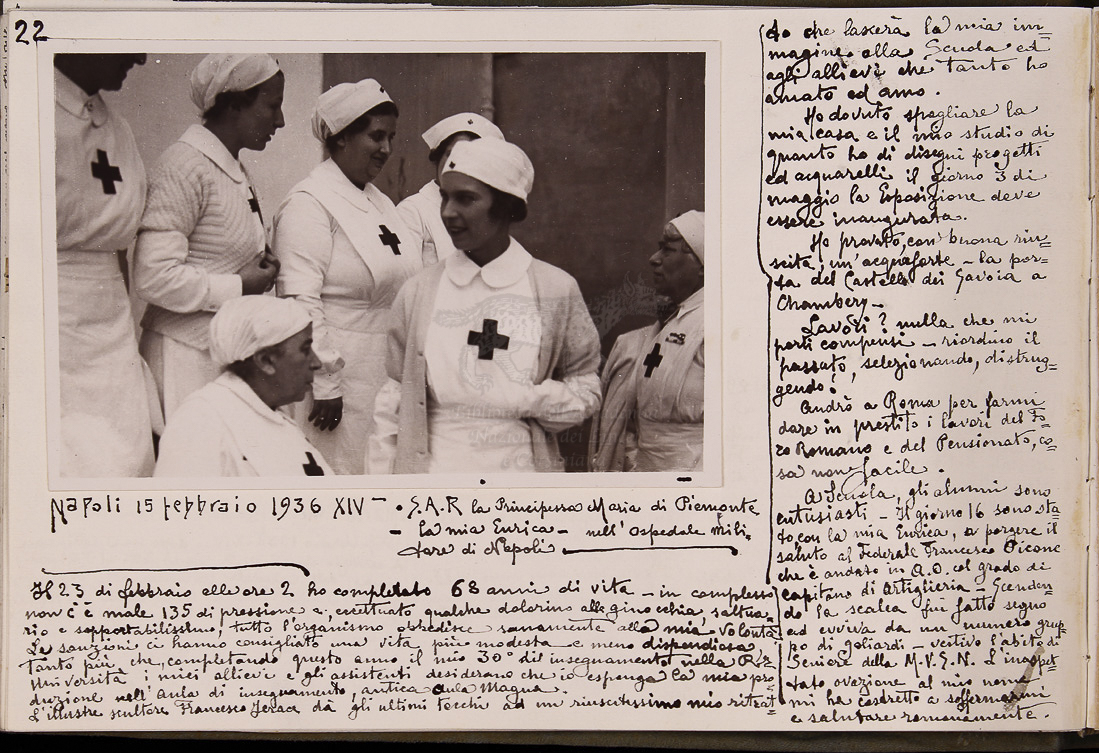 22
Napoli 15 febbraio 1936 XIV - S.A.R la Principessa Maria di Piemonte
- la mia Enrica - nell'Ospedale Mili-
tare di Napoli
Il 23 di febbraio alle ore 2 ho completato 68 anni di vita - in complesso
non c'è male 135 di pressione e, eccettuato qualche dolorino alle ginocchia, saltua-
rio e sopportabilissimo, tutto l'organismo obbedisce sanamente alla mia volontà
Le sanzioni ci hanno consigliato una vita più modesta e meno dispendiosa
tanto più che, completando questo anno il mio 30° di insegnamento nella R.
Università i miei allievi e gli assistenti desiderano che io esponga la mia pro-
duzione nell'Aula di insegnamento, antica aula Magna.
L'illustre scultore Francesco Jerace dà gli ultimi tocchi ad un riuscitissimo mio ritrat-
to che lascerà la mia im-
magine alla Scuola ed
agli allievi che tanto ho
amato ed amo.
Ho dovuto spogliare la
mia casa e il mio studio di
quanto ho di disegni progetti
ed acquarelli il giorno 3 di
maggio la Esposizione deve
essere inaugurata.
Ho provato, con buona riu-
scita, un'acquaforte - la por-
ta del Castello dei Savoia a
Chambery -
Lavori? nulla che mi
porti compensi - riordino il
passato, selezionando, distrug-
gendo!
Andrò a Roma per farmi
dare in prestito i lavori del Fo-
ro Romano e del Pensionato, co-
sa non facile.
A Scuola, gli alunni sono
entusiasti - Il giorno 16 sono sta-
to, con la mia Enrica, a porgere il
saluto al Federale Francesco Picone
che è andato in A.O. col grado di
capitano di Artiglieria - Scenden-
do la scalea fui fatto segno
ad evviva da un numero grup-
po di goliardi - vestivo l'abito di
Seniore della M.V.S.N. L'inaspet-
tato ovazione al mio nome
mi ha costretto a soffermarmi
e salutare romanamente.